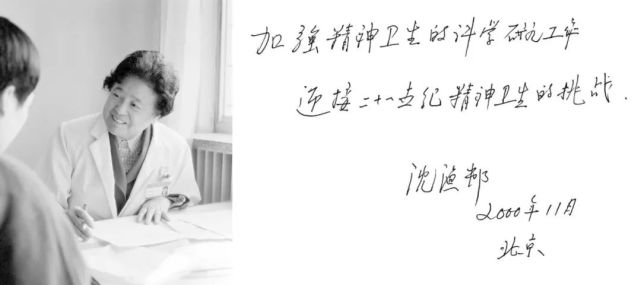 加强精神卫生的科学研究工作
迎接二十一世纪精神卫生的挑战.
沈渔邨
2000年11月
北京